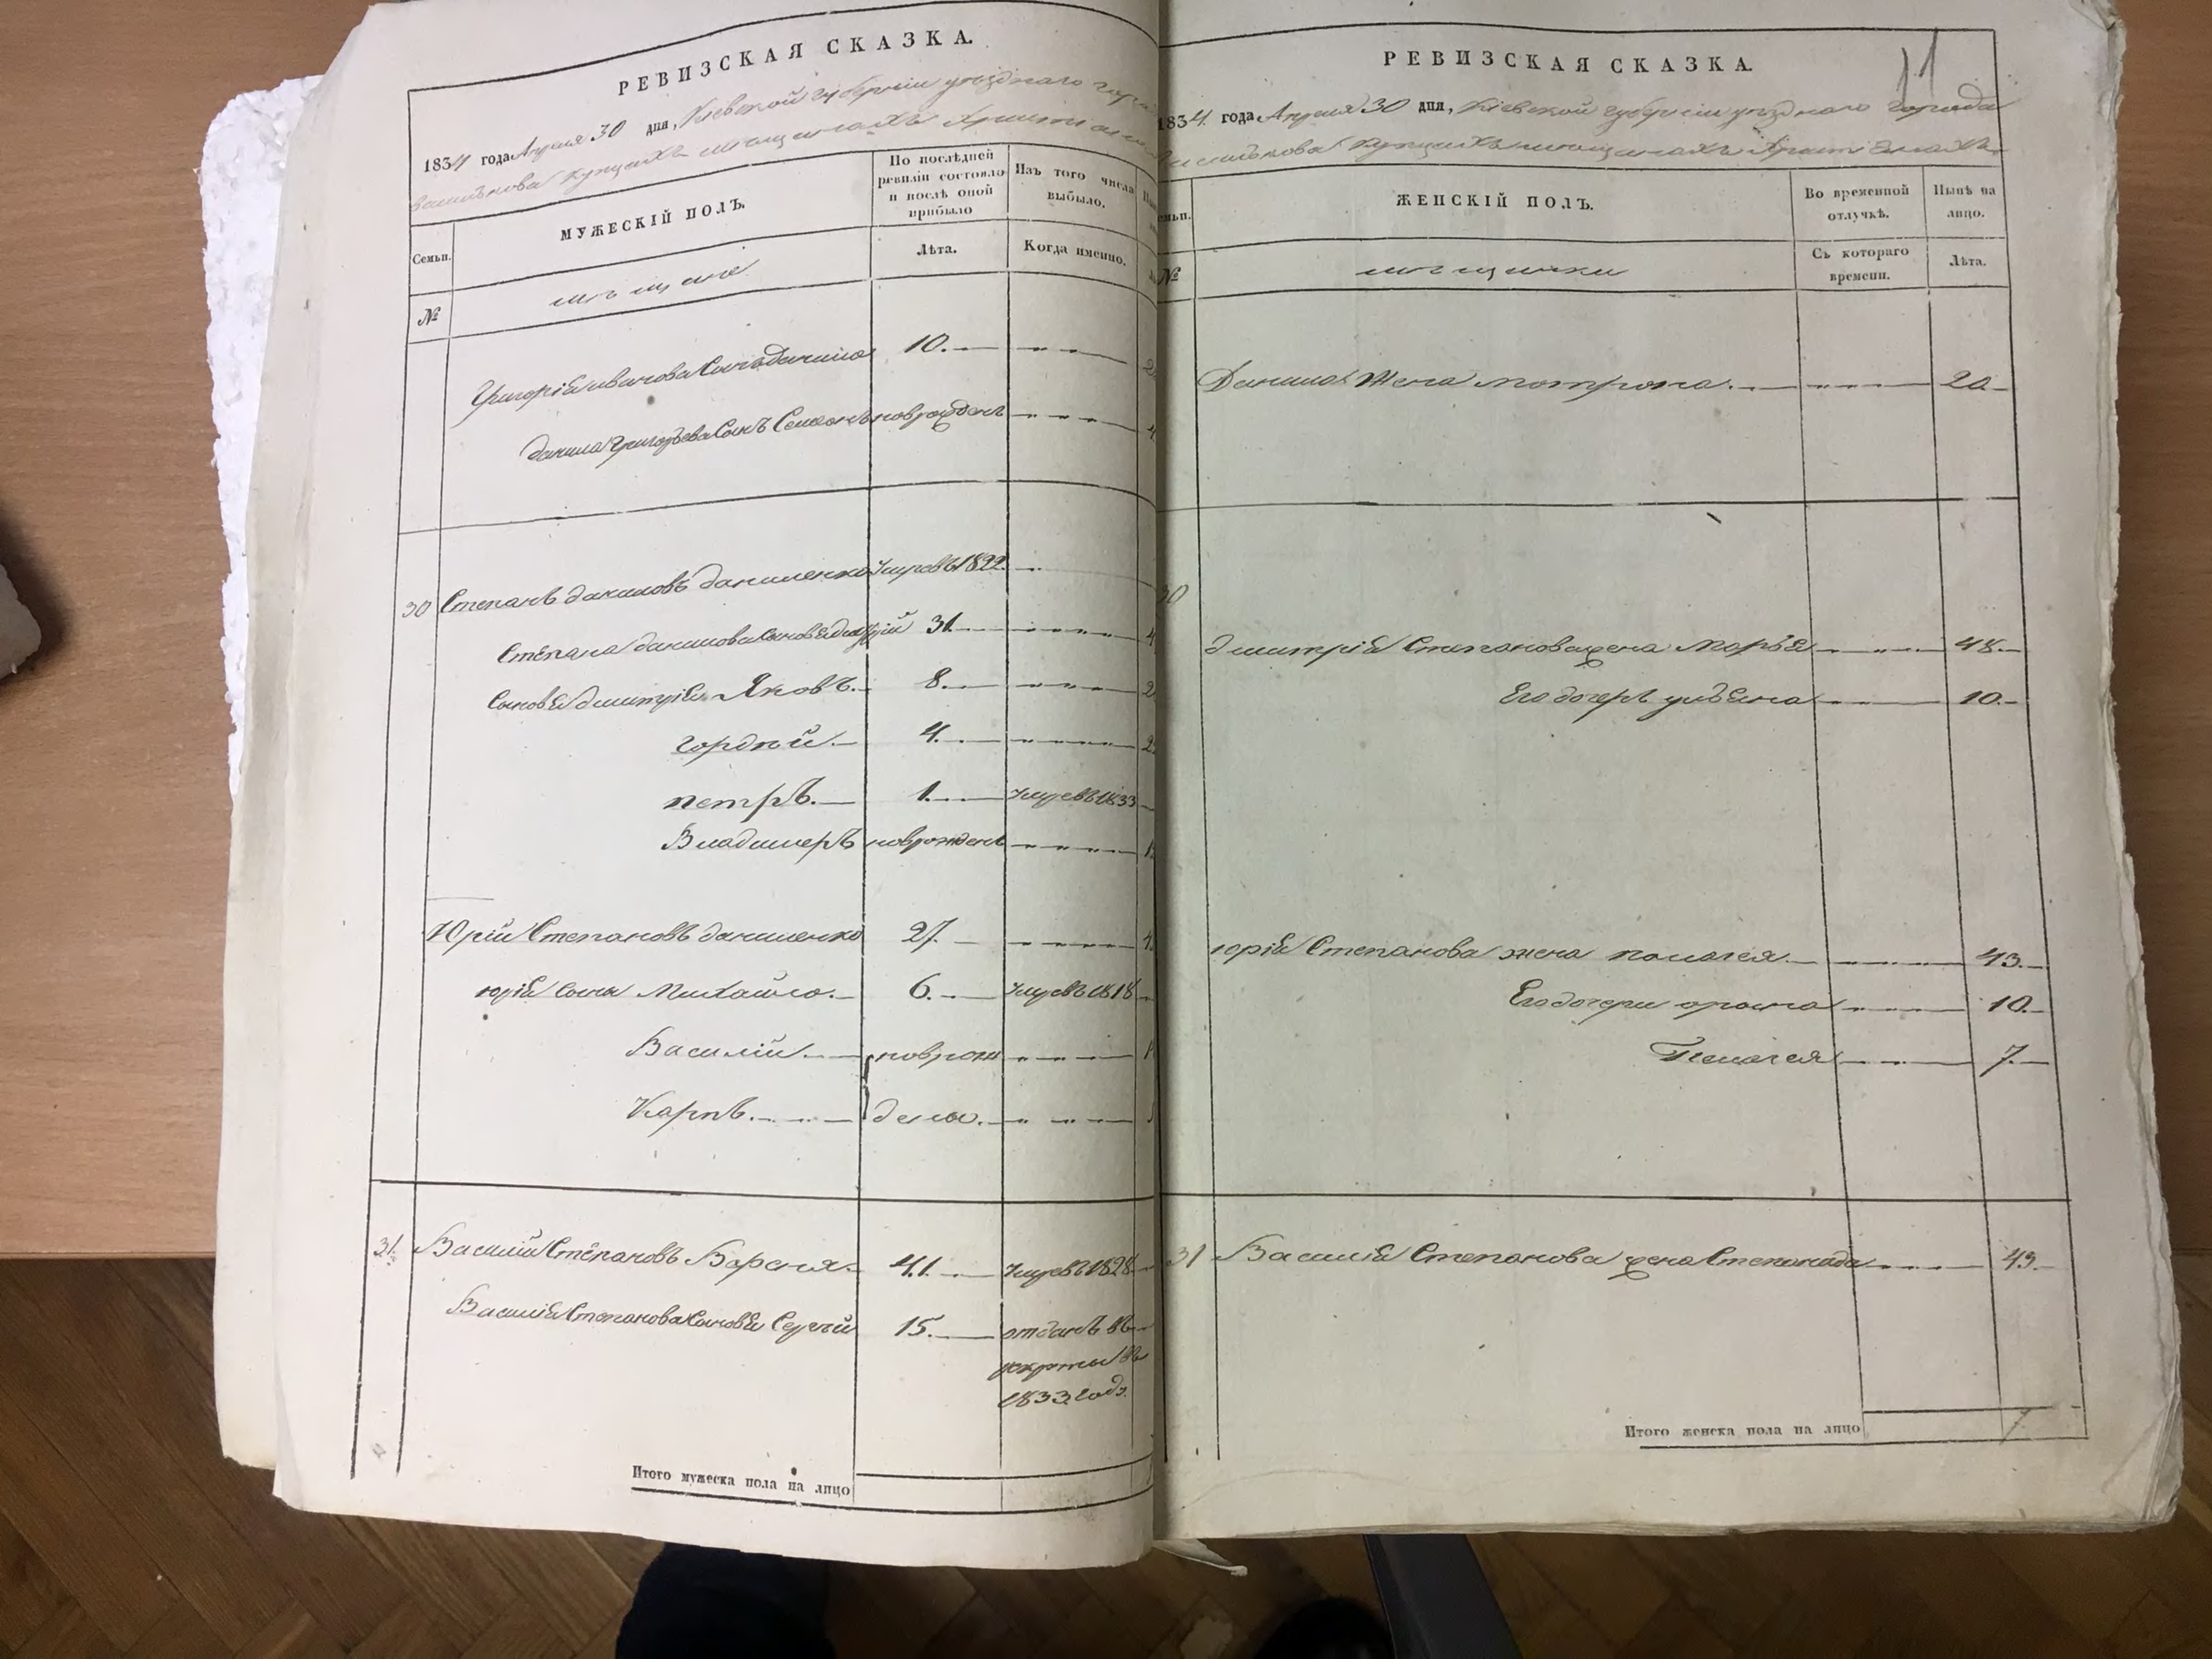 РЕВИЗСКАЯ СКАЗКА.
1834 года Апреля 30 дня, Кіевской губерніи уѣзднаго
Василькова купцахъ мѣщанахъ
Семьи.
МУЖЕСКІЙ ПОЛЪ.
По послѣдней ревизіи состояло и послѣ оной прибыло
Изъ того числа выбыло.
Лѣта.
Когда именно.
№
мѣщане
Григорія иванова сынъ данило 10.
данила Григорьева Сынъ Семенъ новрожденъ
30 Степанъ даниловъ даниленко Умревъ 1822.
Степана данилова сыновья дмитрій 31.
Сыновья дмитрія Яковъ. 8.
гордѣй. 4.
петръ. 1. Умревъ 1833
Владимеръ новрожденъ
Юрій Степановъ даниленко 27.
юрія сыны Михайло. 6. Умревъ 1818
Василій новрож
Карпъ. дены.
31. Василій Степановъ Варсня 41. Умревъ 1828
Василія Степанова Сыновья Сергѣй 15. отданъ въ
рекруты въ
1833 годъ.
Итого мужеска пола на лицо
11
РЕВИЗСКАЯ СКАЗКА.
1834 года Апреля 30 дня, Кіевской губерніи уѣзднаго города
Василькова купцахъ мѣщанахъ Христіанахъ
ЖЕНСКІЙ ПОЛЪ.
Во временной отлучкѣ.
Нынѣ на лицо.
№
мѣщанки
Съ котораго времени.
Лѣта.
Данила жена мотрона. 20
30
дмитрія Степанова жена Марья 48
Его дочерь ульяна 10.
юрія Степанова жена палагея. 43.
Его дочери 10.
Пелагея 7.
31 Василія Степанова жена Степанида 49.
Итого женска пола на лицо 7